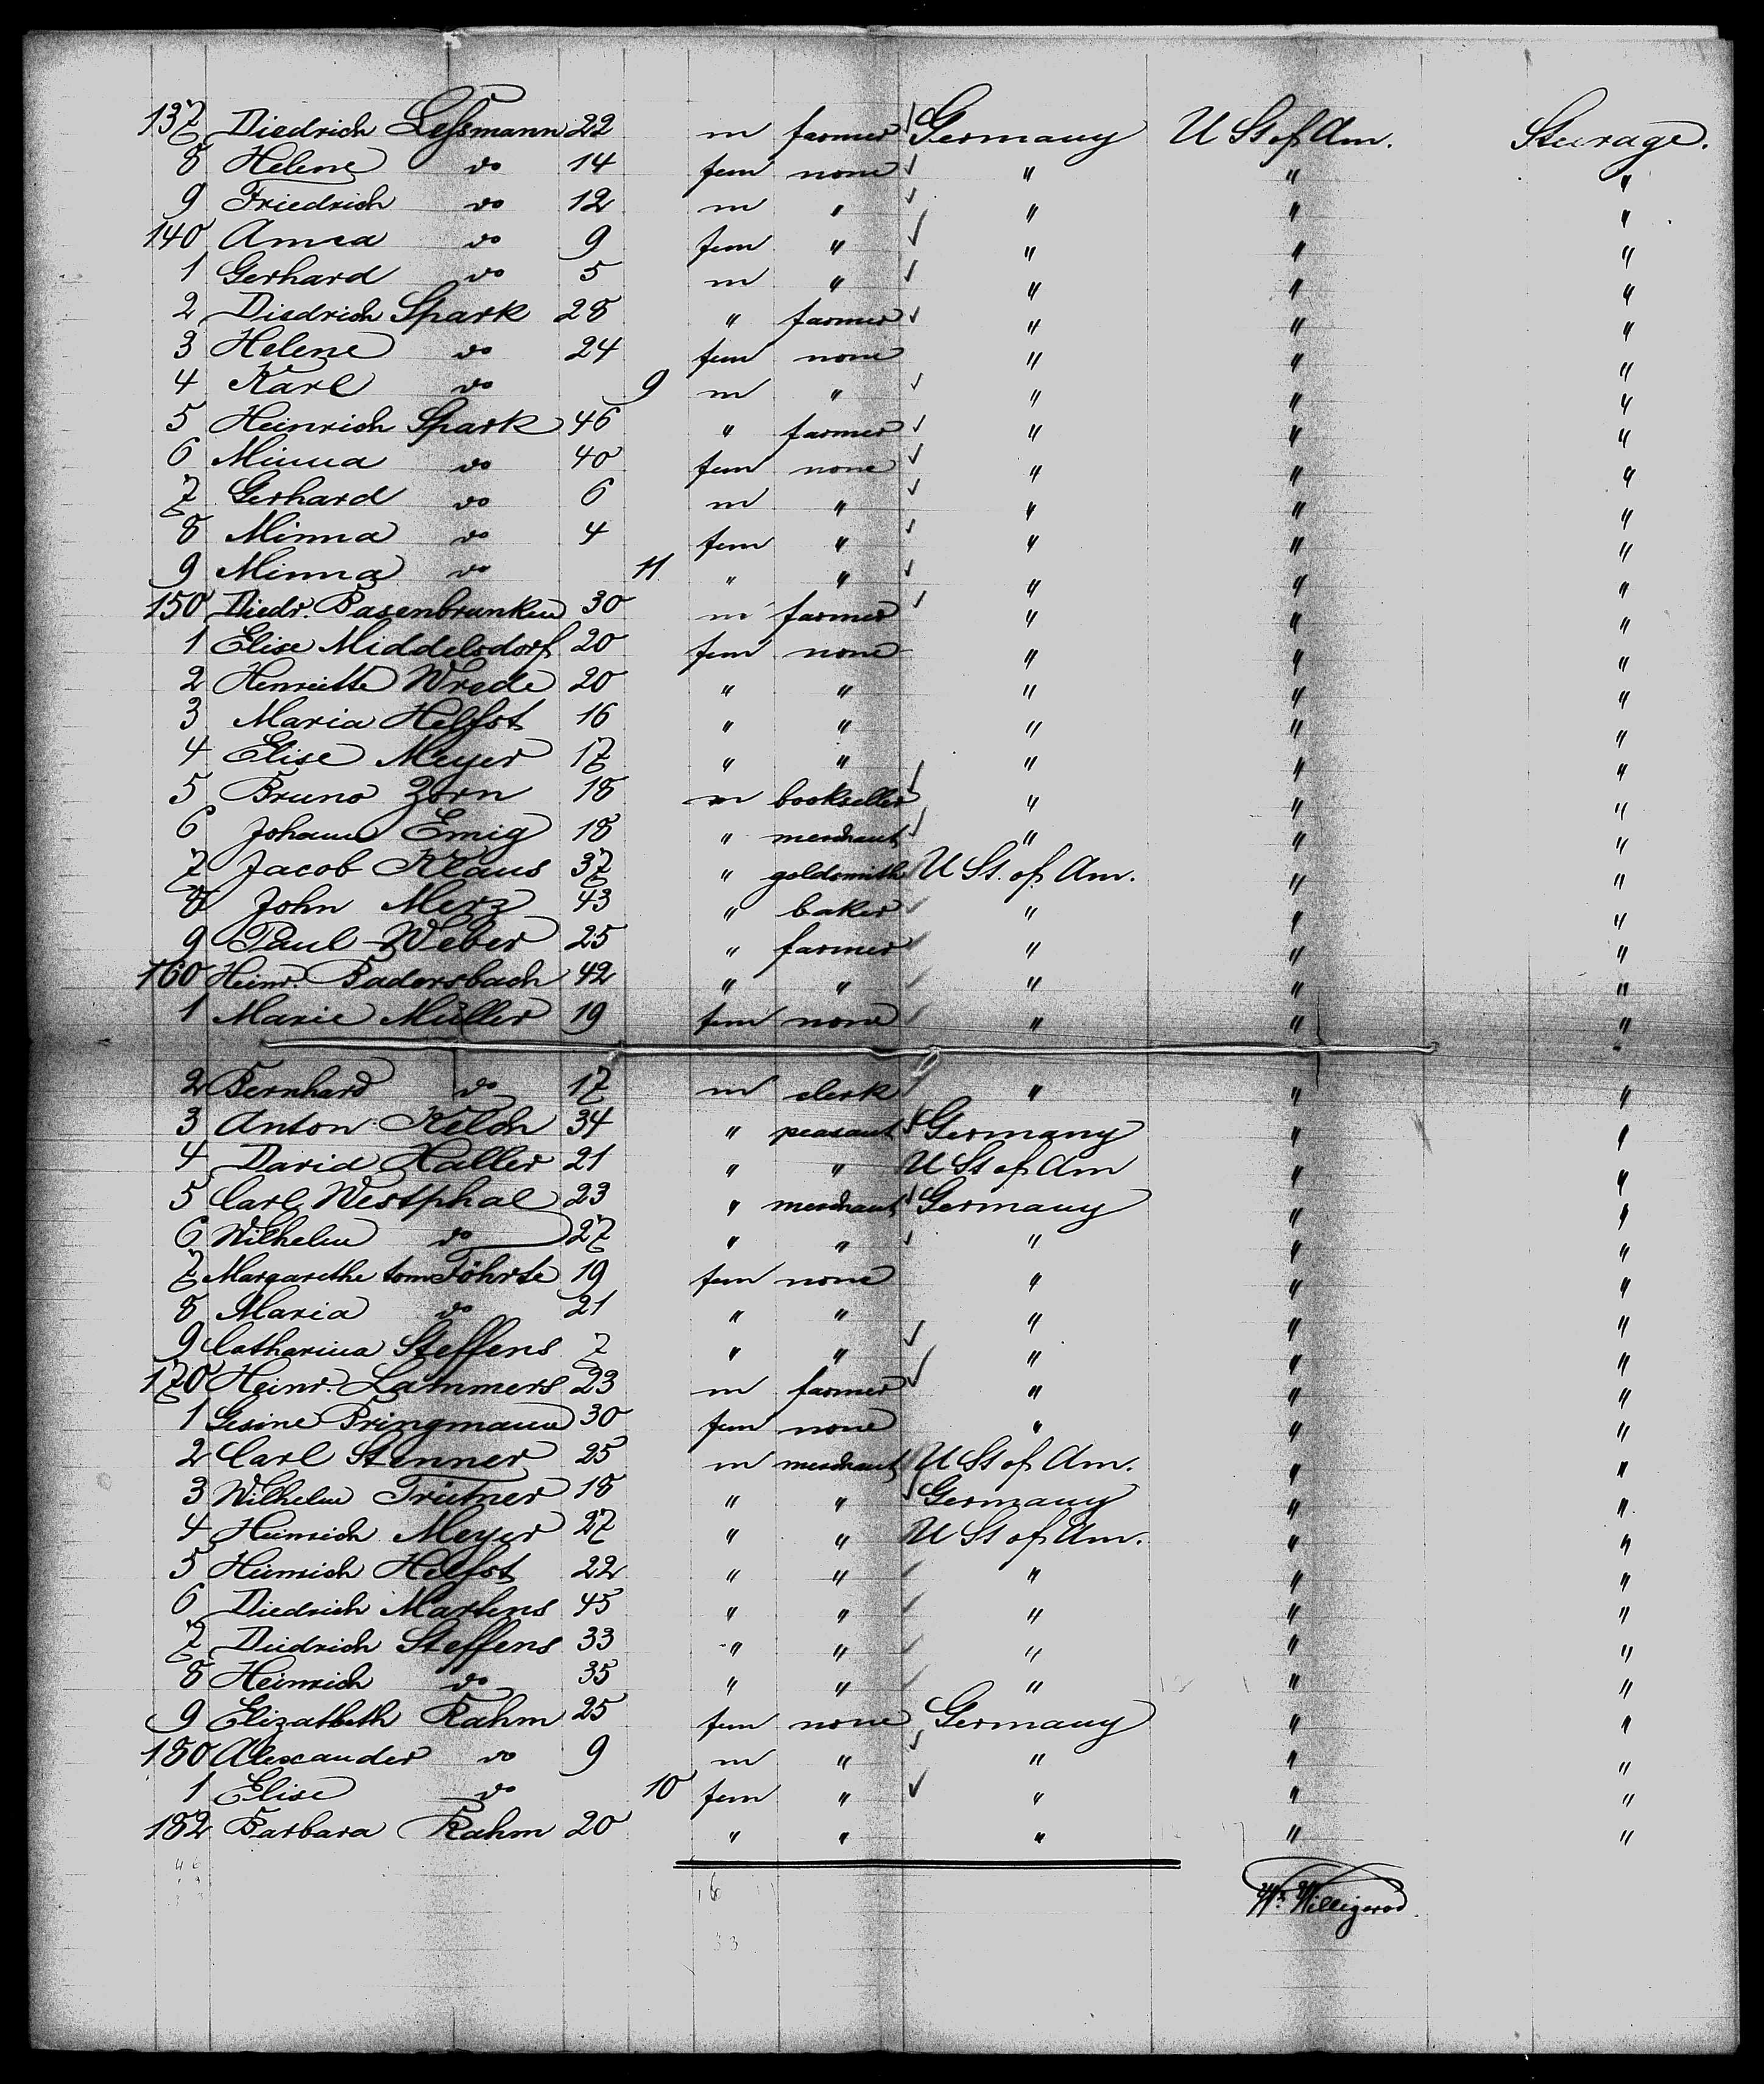 137 Diedrich Lessmann 22 m farmer Germany U St of Am. Steerage.
8 Helene do 14 fem none " " "
9 Friedrich do 12 m " " " "
140 Anna do 9 fem " " " "
1 Gerhard do 5 m " " " "
2 Diedrich Spark 28 " farmer " " "
3 Helene do 24 fem none " " "
4 Karl do 9 m " " " "
5 Heinrich Spark 46 " farmer " " "
6 Minna do 40 fem none " " "
7 Gerhard do 6 m " " " "
8 Minna do 4 fem " " " "
9 Minna do 11 " " " " "
150 Diedr. Basenbrunken 30 m farmer " " "
1 Elise Middelsdorf 20 fem none " " "
2 Henriette Wrede 20 " " " " "
3 Maria Helfst 16 " " " " "
4 Elise Meyer 17 " " " " "
5 Bruno Zorn 18 m bookseller " " "
6 Johann Emig 18 " merchant " " "
7 Jacob Klaus 37 " goldsmith U St. of Am. " "
8 John Merz 43 " baker " " "
9 Paul Weber 25 " farmer " " "
160 Heinr. Badersbach 42 " " " " "
1 Marie Müller 19 fem none " " "
2 Bernhard do 17 m clerk " " "
3 Anton Kelch 34 " peasant Germany " "
4 David Haller 21 " " U St of Am " "
5 Carl Westphal 23 " merchant Germany " "
6 Wilhelm do 27 " " " " "
7 Margarethe tom Föhrte 19 fem none " " "
8 Maria do 21 " " " " "
9 Catharina Steffens 7 " " " " "
170 Heinr. Lammers 23 m farmer " " "
1 Gesine Bringmann 30 fem none " " "
2 Carl Stenner 25 m merchant U St of Am. " "
3 Wilhelm Trütner 18 " " Germany " "
4 Heinrich Meyer 27 " " U St of Am. " "
5 Heinrich Helfst 22 " " " " "
6 Diedrich Martens 45 " " " " "
7 Diedrich Steffens 33 " " " " "
8 Heinrich do 35 " " " " "
9 Elizatbeth Rahm 25 fem none Germany " "
180 Alexander do 9 m " " " "
1 Elise do 10 fem " " " "
182 Barbara Rahm 20 " " " " "
W. Willigerod